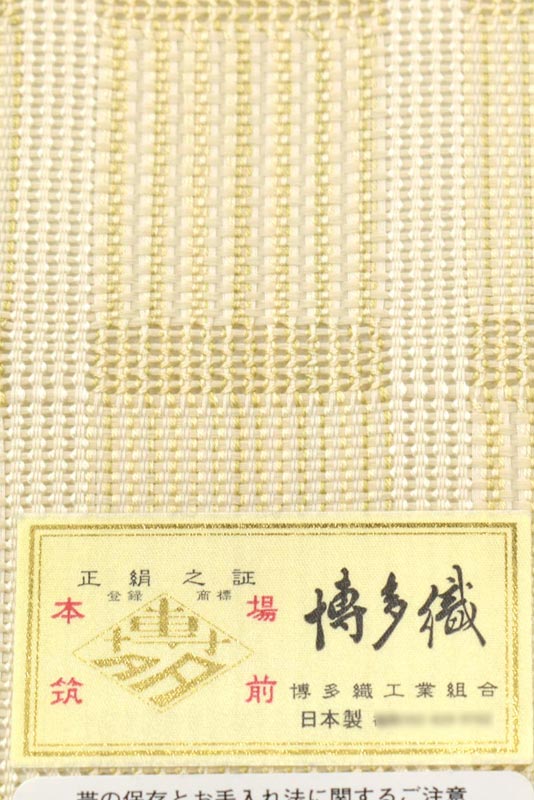 正絹之証
登録 商標
本場
筑前
博多織
博多織工業組合
日本製
帯の保存とお手入れ法に関するご注意